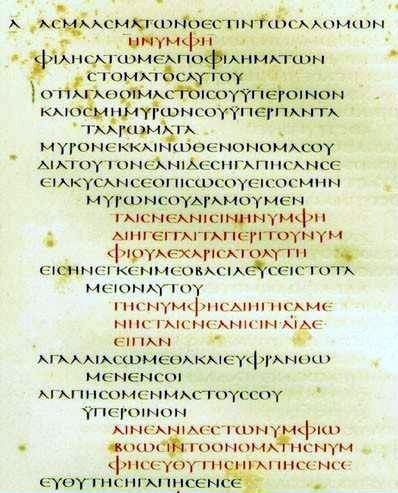 Ā ΑϹΜΑΑϹΜΑΤΩΝΟΕϹΤΙΝΤΩϹΑΛΟΜΩΝ
ΗΝΥΜΦΗ
ΦΙΛΗϹΑΤΩΜΕΑΠΟΦΙΛΗΜΑΤΩΝ
ϹΤΟΜΑΤΟϹΑΥΤΟΥ
ΟΤΙΑΓΑΘΟΙΜΑϹΤΟΙϹΟΥΫΠΕΡΟΙΝΟΝ
ΚΑΙΟϹΜΗΜΥΡΩΝϹΟΥΫΠΕΡΠΑΝΤΑ
ΤΑΑΡΩΜΑΤΑ
ΜΥΡΟΝΕΚΚΑΙΝΩΘΕΝΟΝΟΜΑϹΟΥ
ΔΙΑΤΟΥΤΟΝΕΑΝΙΔΕϹΗΓΑΠΗϹΑΝϹΕ
ΕΙΛΚΥϹΑΝϹΕΟΠΙϹΩϹΟΥΕΙϹΟϹΜΗΝ
ΜΥΡΩΝϹΟΥΔΡΑΜΟΥΜΕΝ
ΤΑΙϹΝΕΑΝΙϹΙΝΗΝΥΜΦΗ
ΔΙΗΓΕΙΤΑΙΤΑΠΕΡΙΤΟΥΝΥΜ
ΦΙΟΥΑΕΧΑΡΙϹΑΤΟΑΥΤΗ
ΕΙϹΗΝΕΓΚΕΝΜΕΟΒΑϹΙΛΕΥϹΕΙϹΤΟΤΑ
ΜΕΙΟΝΑΥΤΟΥ
ΤΗϹΝΥΜΦΗϹΔΙΗΓΗϹΑΜΕ
ΝΗϹΤΑΙϹΝΕΑΝΙϹΙΝ·ΑΪΔΕ·
ΕΙΠΑΝ
ΑΓΑΛΛΙΑϹΩΜΕΘΑΚΑΙΕΥΦΡΑΝΘΩ
ΜΕΝΕΝϹΟΙ
ΑΓΑΠΗϹΟΜΕΝΜΑϹΤΟΥϹϹΟΥ
ΫΠΕΡΟΙΝΟΝ
ΑΙΝΕΑΝΙΔΕϹΤΩΝΥΜΦΙΩ
ΒΟΩϹΙΝΤΟΟΝΟΜΑΤΗϹΝΥΜ
ΦΗϹΕΥΘΥΤΗϹΗΓΑΠΗϹΕΝϹΕ
ΕΥΘΥΤΗϹΗΓΑΠΗϹΕΝϹΕ